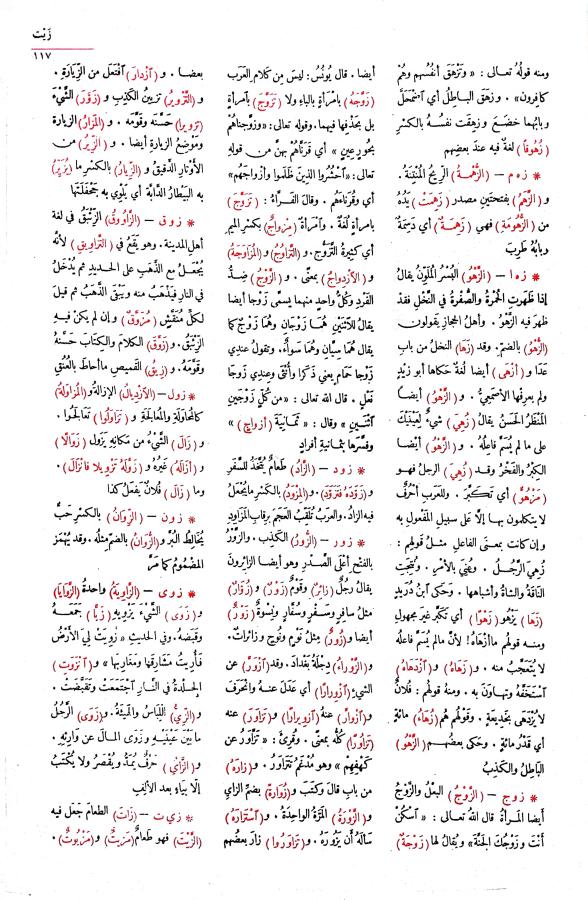 زَيْت
١١٧
ومنه قولُهُ تعالى : «وتَزْهَقَ أَنفُسُهم وهُمْ
كافِرون» . وزهَق الباطِلُ أي اضْمَحَلَّ
وبابُهما خضَع . وزهِقَت نفسُهُ بالكسرِ
(زُهوقاً) لغةٌ فيه عندَ بعضِهم
* زهم – (الزُّهْمَةُ) الرِّيحُ المُنْتِنَةُ .
و (الزَّهَمُ) بفتحتَينِ مصدر (زَهِمَتْ) يَدُهُ
من (الزُّهُومَةِ) فهي (زَهِمَةٌ) أي دَسِمَةٌ
وبابُهُ طَرِبَ
* زها – (الزَّهْوُ) البُسْرُ المُلَوَّنُ يقالُ
إذا ظَهَرَتِ الحُمْرَةُ والصُّفْرَةُ في النَّخْلِ فقدْ
ظهَر فيه الزَّهْوُ . وأهلُ الحجازِ يقولون
(الزُّهْوُ) بالضمِّ . وقد (زَهَا) النخلُ من بابِ
عَدَا و (أَزْهَى) أيضا لُغةٌ حكاها أبو زَيْدٍ
ولم يعرِفْها الأصْمَعِيُّ . و (الزَّهْوُ) أيضا
المنْظَرُ الحَسَنُ يقالُ (زُهِيَ) شيءٌ لِعَيْنَيْكَ
على ما لم يُسَمَّ فاعِلُهُ . و (الزَّهْوُ) أيضا
الكِبْرُ والفَخْرُ وقد (زُهِيَ) الرجلُ فهو
(مَزْهُوٌّ) أي تَكَبَّر . وللعربِ أحْرُفٌ
لا يتكلمون بها إلّا على سبيلِ المفعولِ به
وإن كانت بمعنى الفاعلِ مثلُ قولِهم :
زُهِيَ الرَّجُلُ . وعُنِيَ بالأمرِ . ونُتِجَتِ
الناقةُ والشاةُ وأشباهها . وحكَى ابنُ دُرَيدٍ
(زَهَا) يَزْهُو (زَهْوًا) أي تَكَبَّر غيرَ مجهولٍ
ومنه قولُهم ما أَزْهاهُ ! لأنَّ مالم يُسَمَّ فاعلُهُ
لا يُتَعَجَّبُ منه . و (زَهَاهُ) و (ازْدَهَاهُ)
اسْتَخَفَّهُ وتَهاوَن به . ومنه قولُهم : فلانٌ
لا يُزْدَهَى بخَديعةٍ . وقولُهم هُم (زُهَاءُ) مائةٍ
أي قَدْرُ مائةٍ . وحكَى بعضُهم (الزَّهْوُ)
الباطِلُ والكَذِبُ
* زوج – (الزَّوْجُ) البَعْلُ والزَّوْجُ
أيضا المرأةُ قال اللهُ تعالى : «اسْكُنْ
أنْتَ وزَوْجُكَ الجَنَّةَ» ويُقالُ لها (زَوْجَةٌ)
أيضا . قال يُونُسُ : ليسَ من كلامِ العرَبِ
(زَوَّجَهُ) بامْرأةٍ بالباءِ ولا (تَزَوَّجَ) بامرأةٍ
بل بحذْفِها فيهما . وقوله تعالى: «وزوَّجْناهُمْ
بحُورٍ عِينٍ» أي قَرَنَّاهُمْ بهِنَّ من قولِهِ
«احْشُرُوا الذينَ ظَلَمُوا وأزْواجَهُمْ»
أي وقُرَناءَهُم . وقال الفَرَّاءُ : (تَزَوَّجَ)
بامرأةٍ لُغَةٌ . وامرأةٌ (مِزْواجٌ) بكسرِ الميمِ
أي كثيرةُ التَّزَوُّجِ . و(التَّزاوُجُ) و(المُزاوَجَةُ)
و (الازدواجُ) بمعنًى . و (الزَّوْجُ) ضِدُّ
الفَرْدِ وكُلُّ واحدٍ منهما يسمَّى زوجا أيضا
يقالُ للاثْنَيْنِ هُمَا زَوْجانِ وهُمَا زَوْجٌ كما
يقالُ هُمَا سِيَّانِ وهُمَا سَواءٌ . وتقولُ عندِي
زَوْجا حَمامٍ يعني ذَكَرا وأُنْثَى وعندِي زَوْجا
نَعْلٍ . قال الله تعالى : «مِن كُلٍّ زَوْجَيْنِ
اثْنَيْنِ» وقال : « ثمانيةَ (أزْواجٍ) »
وفسَّرها بثمانيةِ أفرادٍ
* زود – (الزَّادُ) طعامٌ يُتَّخَذُ للسَّفَرِ
و(زَوَّدَهُ فَتَزَوَّدَ) . و(المِزْوَدُ) بالكسرِ ما يُجعَلُ
فيه الزادُ . والعربُ تُلَقِّبُ العجَمَ برِقابِ المَزاوِدِ
* زور – (الزُّورُ) الكذِبُ . والزَّوْرُ
بالفتحِ أعْلَى الصَّدْرِ وهو أيضا الزائرونَ
يقالُ رجُلٌ (زائرٌ) وقَوْمٌ (زَوْرٌ) و (زُوَّارٌ)
مثلُ سافرٍ وسَفْرٍ وسُفَّارٍ ونِسْوةٌ (زَوْرٌ)
أيضا و(زُوَّرٌ) مثلُ نُوَّمٍ ونُوَّحٍ وزائراتٌ .
و(الزَّوْراءُ) دِجْلةُ بَغْدادَ . وقد (ازْوَرَّ) عن
الشيءِ (ازْوِرارًا) أي عَدَلَ عنهُ وانْحَرَف
و (ازْوارَّ) عنهُ (ازْوِيرارًا) و (تَزاوَرَ) عنه
(تَزاوُرًا) كُلُّه بمعنًى . وقُرِئ : « تَزَّاوَرُ عن
كَهْفِهِم » وهو مُدغَمُ تَتَزاوَر . و (زارَهُ)
من بابِ قالَ وكَتَب و (زُوَارةً) بضمِّ الزاي
و (الزَّوْرَةُ) المَرَّةُ الواحدةُ . و (اسْتَزارَهُ)
سألَهُ أن يَزُورَهُ . و (تَزاوَرُوا) زار بعضُهم
بعضا . و (ازْدارَ) افْتَعل من الزِّيارَةِ .
و (التَّزْوِيرُ) تَزْيينُ الكَذِبِ و (زَوَّرَ) الشَّيْءَ
(تزوِيرا) حَسَّنَهُ وقَوَّمَهُ . و (المَزارُ) الزيارة
ومَوْضِعُ الزيارةِ أيضا . و (الزِّيرُ) من
الأَوتارِ الدَّقيقُ و (الزِّيارُ) بالكسْرِ ما (يُزَيِّرُ)
به البَيْطارُ الدَّابَّةَ أي يَلْوِي به جَحْفَلَتَها
* زوق – (الزَّاوُوقُ) الزِّئبَقُ في لغةِ
أهلِ المدينةِ . وهو يَقَعُ في (التَّزاويقِ) لأنَّه
يُجْعلُ مع الذَّهَبِ على الحديدِ ثم يُدْخَلُ
في النارِ فيَذْهَبُ منه ويَبْقَى الذَّهَبُ ثم قيل
لكلِّ مُنَقَّشٍ (مُزَوَّقٌ) وإن لم يكنْ فيه
الزِّئْبَقُ . و(زَوَّقَ) الكلامَ والكِتابَ حَسَّنَهُ
وقوَّمَهُ . و (زِيقُ) القَميصِ ما أحاطَ بالعُنُقِ
* زول – (الازْدِيالُ) الإزالةُ و(المُزاوَلةُ)
كالمُحاوَلةِ والمُعالجةِ و (تَزاوَلُوا) تعالَجُوا .
و (زالَ) الشَّيْءُ من مكانِه يَزُولُ (زَوَالًا)
و (أزالَهُ) غيرُه و (زَوَّلَهُ تزْوِيلا فانْزالَ) .
وما (زالَ) فلانٌ يَفعلُ كذا
* زون – (الزِّوانُ) بالكسرِ حَبٌّ
يُخالِطُ البُرَّ و(الزُّوانُ) بالضمِّ مثلُهُ . وقد يُهمَزُ
المضمُومُ كما مرَّ
* زوى – (الزَّاوِيَةُ) واحدةُ (الزَّوايَا)
و (زَوَى) الشَّيْءَ يَزْوِيهِ (زَيًّا) جَمَعَهُ
وقبَضَهُ . وفي الحديثِ « زُوِيَتْ لِيَ الأَرْضُ
فأُرِيتُ مَشارِقَها ومَغارِبَها » و (انْزَوَتِ)
الجِلدةُ في النَّارِ اجتمَعَتْ وتقبَّضَتْ .
و (الزِّيُّ) اللِّباسُ والهَيْئةُ . و(زَوَى) الرَّجُلُ
ما بَيْنَ عَيْنَيهِ وزَوَى المالَ عن وارِثِهِ .
و (الزايُ) حَرْفٌ يُمَدُّ ويُقصَرُ ولا يُكْتَبُ
إلّا بياءٍ بعد الألِفِ
* زيت – (زاتَ) الطعامَ جعَل فيه
(الزَّيْتَ) فهو طعامٌ (مَزِيتٌ) و (مَزْيُوتٌ) .